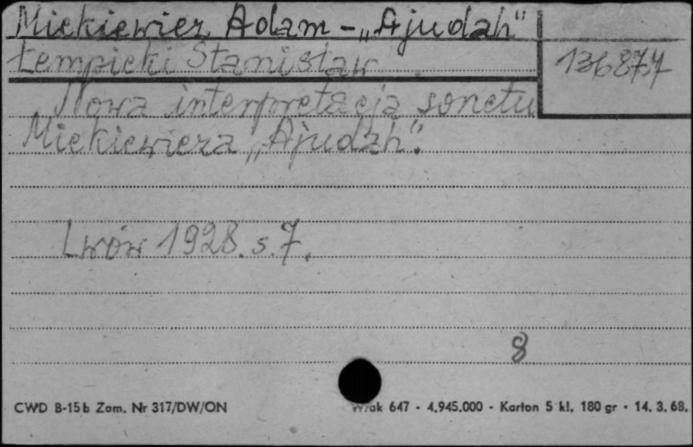 Mickiewicz Adam - „Ajudah"
136874
Łempicki Stanisław
Nowa interpretacja sonetu
Mickiewicza „Ajudah".
Lwów 1928. s. 7.
8
CWD B-15b Zam. Nr 317/DW/ON
647 - 4.945.000 - Karton 5 kl. 180 gr - 14. 3. 68.